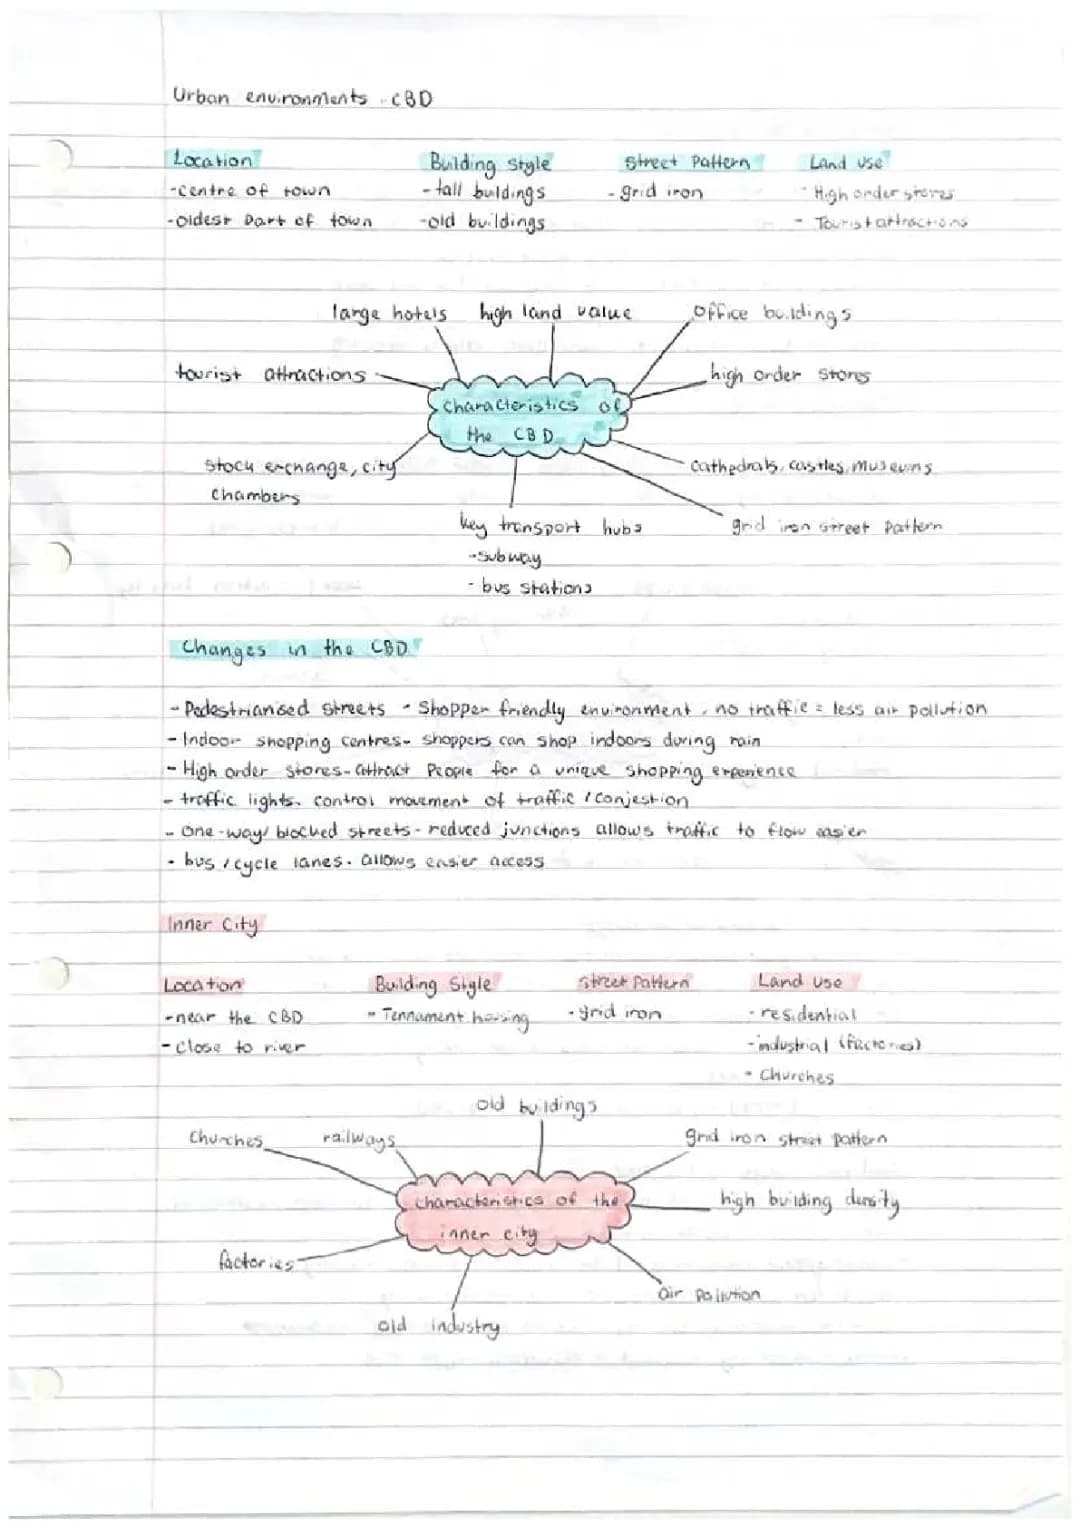 Urban environments - CBD
Location Building Style Street Pattern Land use
-centre of town -tall buildings -grid iron - High order stores
-oldest part of town -old buildings - Tourist attractions
large hotels high land value office buildings
tourist attractions high order stores
Characteristics of
the CBD
stock exchange, city cathedrals, castles, museums
chambers
key transport hubs grid iron street pattern
-subway
- bus stations
Changes in the CBD
- Pedestrianised streets - Shopper friendly environment, no traffic = less air pollution
- Indoor shopping centres- shoppers can shop indoors during rain
- High order stores- attract people for a unique shopping experience
- traffic lights- control movement of traffic / conjestion
- One-way/ blocked streets- reduced junctions allows traffic to flow easier
- bus / cycle lanes- allows easier access
Inner City
Location Building Style Street Pattern Land use
-near the CBD - Tennament housing -grid iron - residential
- Close to river - industrial (factories)
- Churches
old buildings
Churches railways grid iron street pattern
characteristics of the high building density
inner city
factories
air pollution
old industry